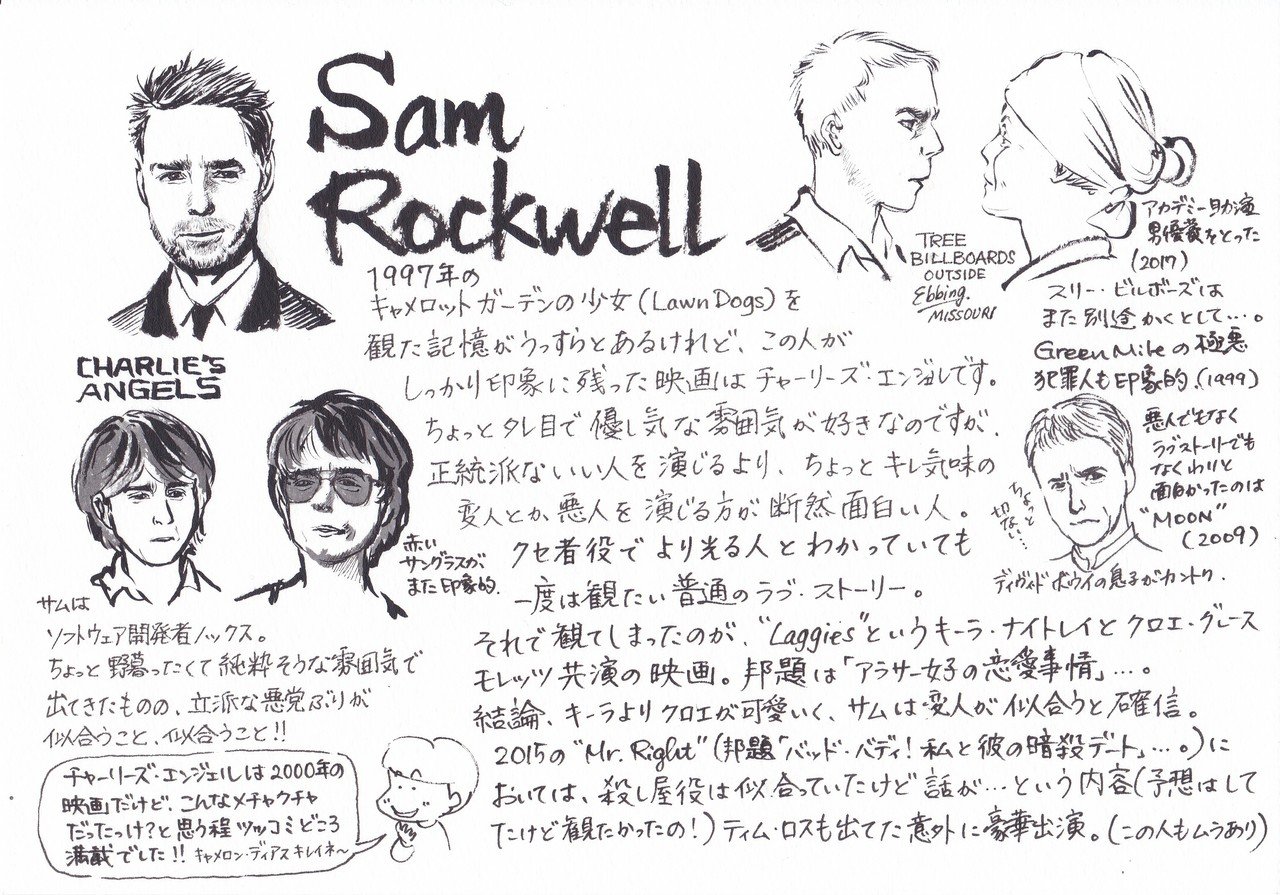 Sam
Rockwell
TREE
BILLBOARDS
OUTSIDE
Ebbing.
MISSOURI
アカデミー助演
男優賞をとった
(2017)
スリー・ビルボーズは
また別途かくとして…。
Green Mileの極悪
犯罪人も印象的、(1999)
悪人でもなく
ラブストーリーでも
なくわりと
面白かったのは
"MOON"
(2009)
ちょっと
切ない…
ディヴィド ボウイの息子がカントク.
1997年の
キャメロット ガーデンの少女(Lawn Dogs)を
観た記憶がうっすらとあるけれど、この人が
しっかり印象に残った映画はチャーリーズ・エンジェルです。
ちょっとタレ目で優し気な雰囲気が好きなのですが、
正統派ないい人を演じるより、ちょっとキレ気味の
変人とか、悪人を演じる方が断然面白い人。
クセ者役でより光る人とわかっていても
一度は観たい普通のラブ・ストーリー。
それで観てしまったのが、"Laggies"というキーラ・ナイトレイとクロエ・グレース
モレッツ共演の映画。邦題は「アラサー女子の恋愛事情」…。
結論、キーラよりクロエが可愛いく、サムは変人が似合うと確信。
2015の"Mr. Right"(邦題「バッド・バディ!私と彼の暗殺デート」…。)に
おいては、殺し屋役は似合っていたけど話が…という内容(予想はして
たけど観たかったの!)ティム・ロスも出てた意外に豪華出演。(この人もムラあり)
CHARLIE'S
ANGELS
赤い
サングラスが、
また印象的.
サムは
ソフトウェア開発者ノックス。
ちょっと野暮ったくて純粋そうな雰囲気で
出てきたものの、立派な悪党ぶりが
似合うこと、似合うこと!!
チャーリーズ・エンジェルは2000年の
映画だけど、こんなメチャクチャ
だったっけ?と思う程ツッコミどころ
満載でした!! キャメロン・ディアス キレイネ〜